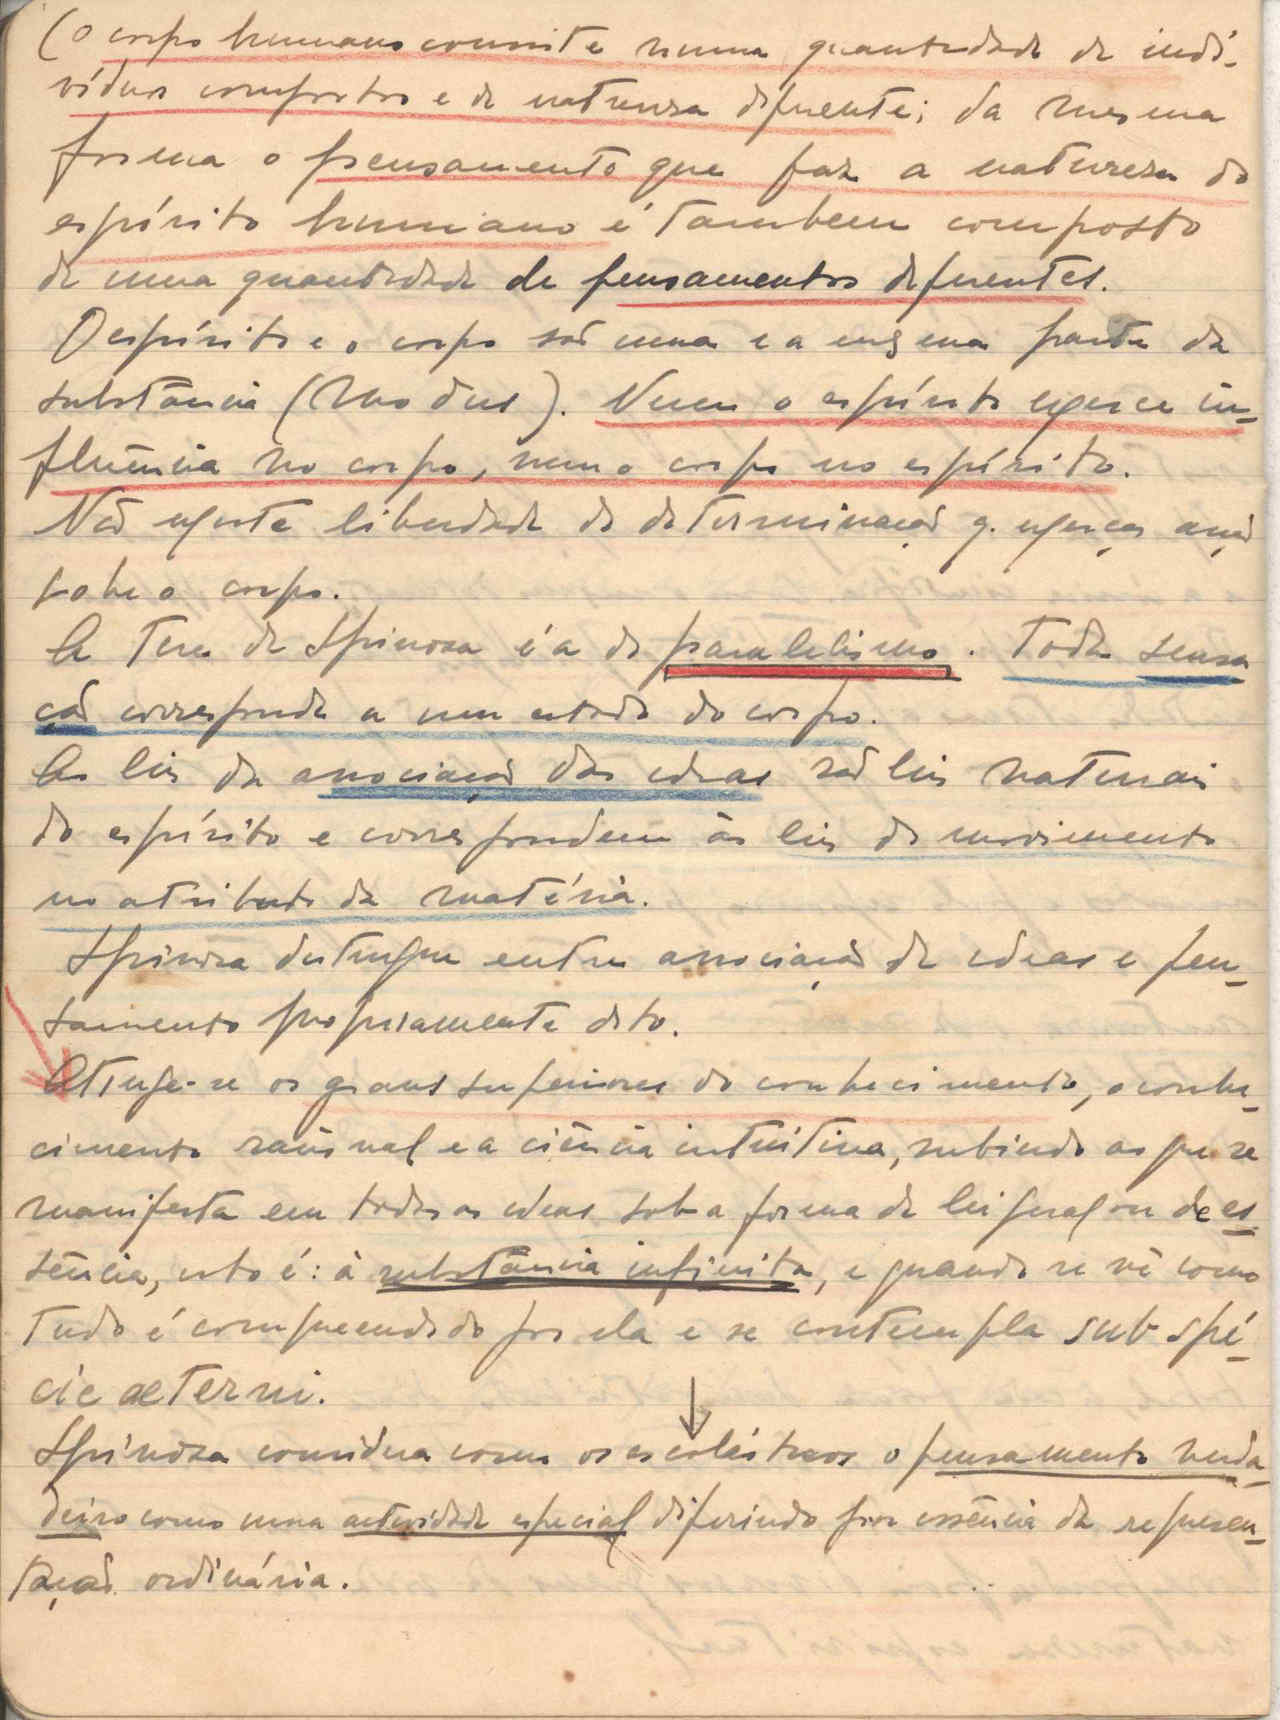 (O corpo humano consiste numa quantidade de indi-
víduos compostos e de natureza diferente; da mesma
forma o pensamento que faz a natureza do
espírito humano é tambem composto
de uma quantidade de pensamentos diferentes.
O espírito e o corpo são uma e a mesma parte da
substância (Modus). Nem o espírito exerce in-
fluência no corpo, nem o corpo no espírito.
Não existe liberdade de determinação q. exerça acção
sobre o corpo.
A tese de Spinosa é a do paralelismo. Toda sensa
ção corresponde a um estado do corpo.
As leis da associação das ideas são leis naturais
do espírito e correspondem às leis do movimento
no atributo da matéria.
Spinosa distingue entre associação de ideas e pen-
samento propriamente dito.
Atinge-se os graus superiores do conhecimento, o conhe-
cimento racional e a ciência intuitiva, subindo ao que se
manifesta em todas as ideas sob a forma de lei geral ou de es-
sência, isto é: à substância infinita, e quando se vê como
tudo é compreendido por ela e se contempla sub spé-
cie æterni.
Spinosa considera como os escolásticos o pensamento verda-
deiro como uma actividade especial diferindo por essência da represen-
tação ordinária.